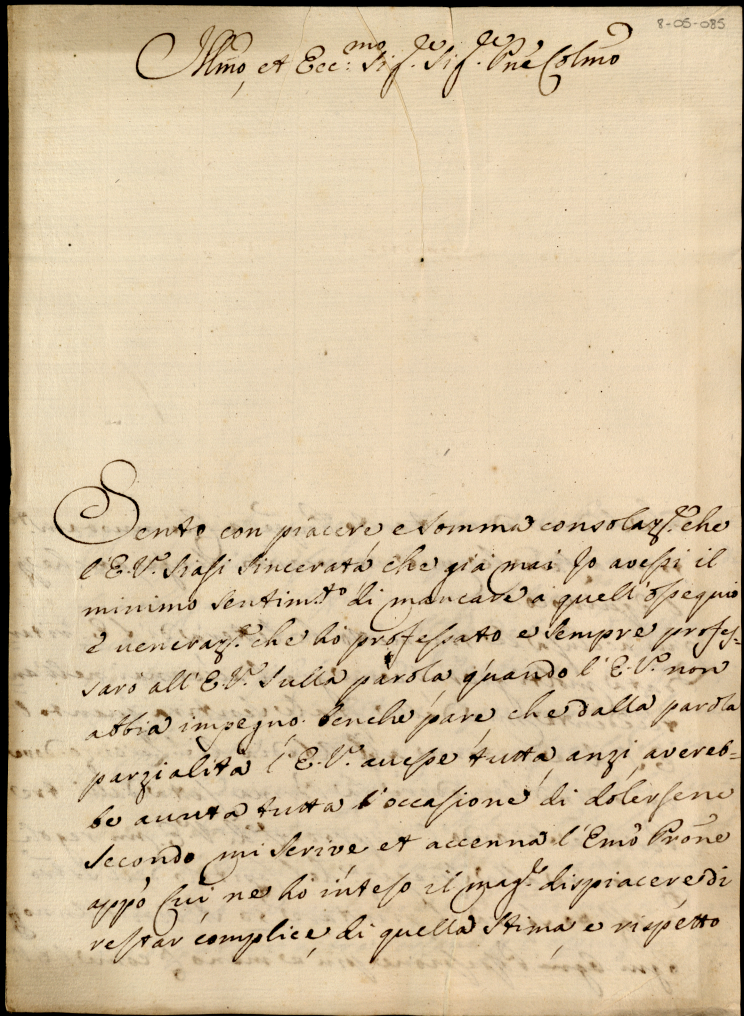 8-05-085
Illmo, et Ecc:mo Sig.re Sig.re Pne Colmo
Sento con piacere, e somma consolaz.e che
l'E.V. siasi sincerata che già mai Io avessi il
minimo sentim.to di mancare a quell'ossequio
e veneraz.e che hò professato e sempre profes=
sarò all'E.V. Sulla parola quando l'E.V. non
abbia impegno. Benche pare che dalla parola
parzialità l'E.V. avesse tutta, anzi, avereb=
be avuta tutta l'occasione di dolersene
secondo mi scrive et accenna l'Emo Prone
appò cui ne hò inteso il mag.re dispiacere di
restar complice, di quella stima, e rispetto